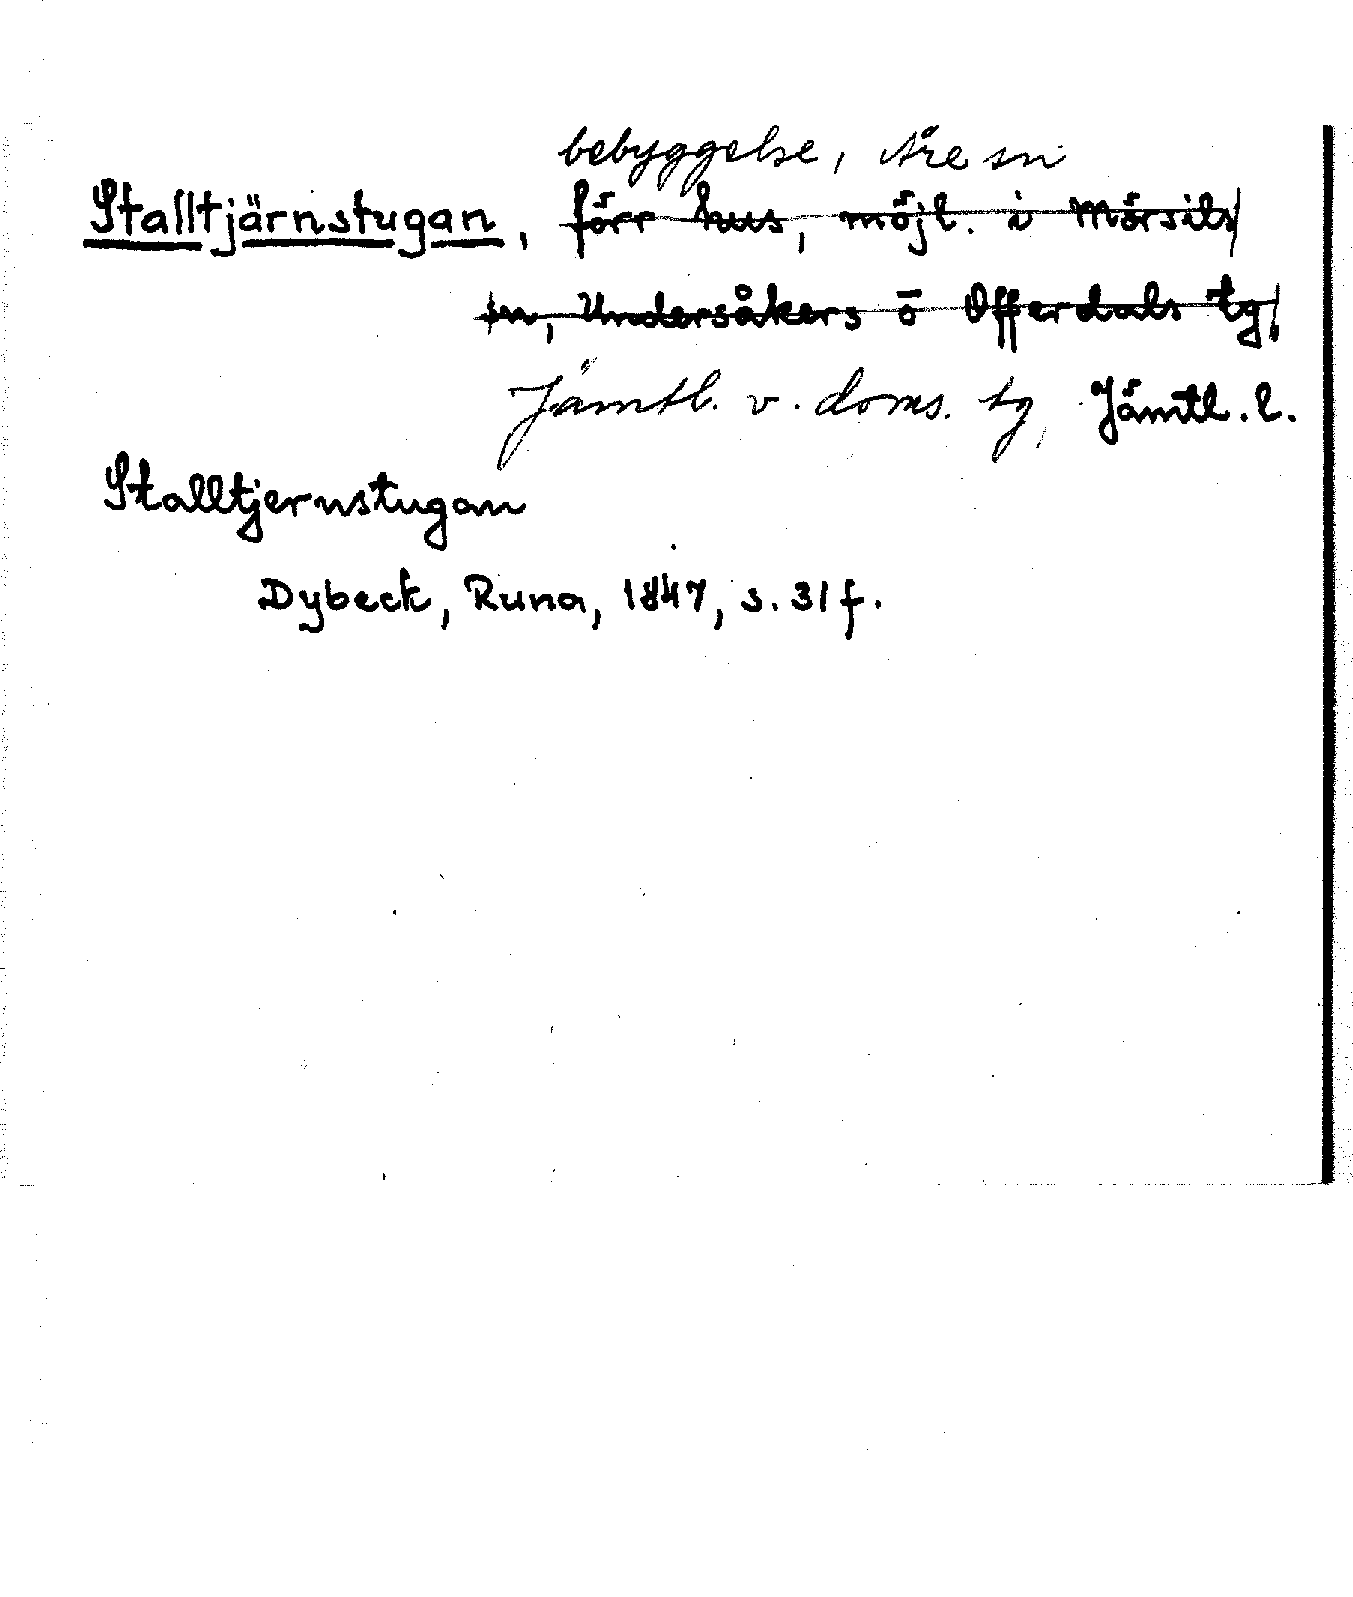 bebyggelse, Åre sn
Stalltjärnstugan, förr hus, möjl. i Mörsils
sn, Undersåkers o Offerdals tg,
Jämtl. v. doms. tg, Jämtl. l.
Stalltjernstugan
Dybeck, Runa, 1847, s. 31 f.